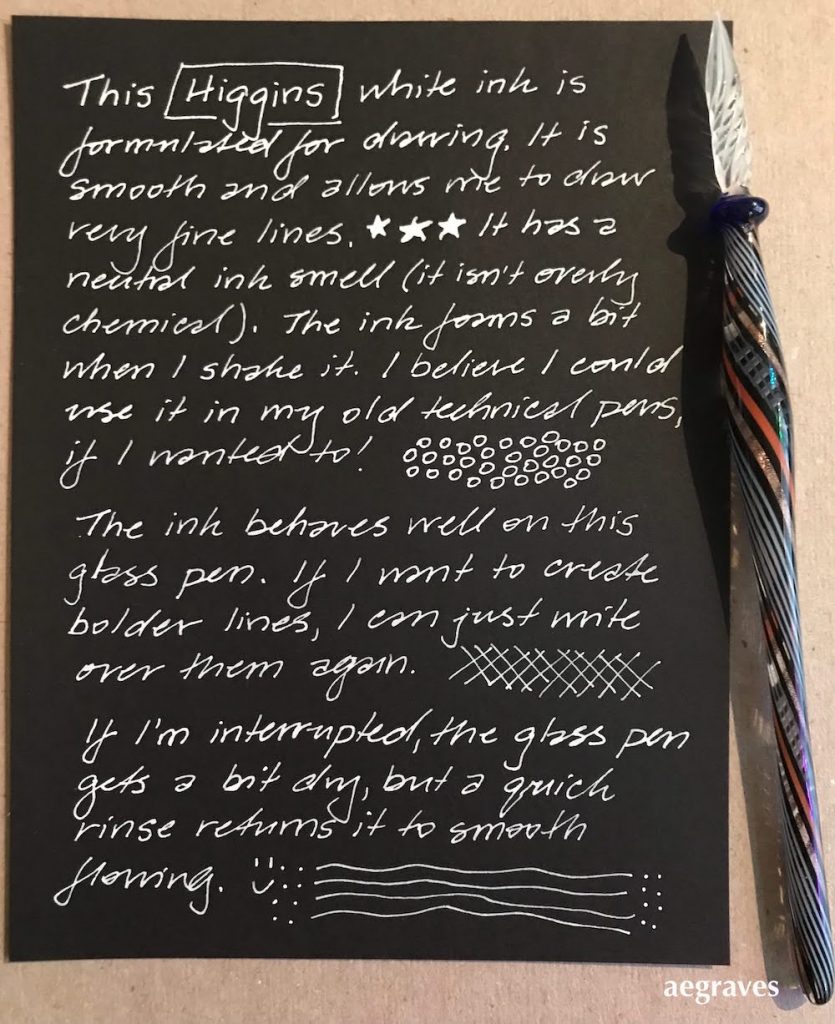 This Higgins white ink is
formulated for drawing. It is
smooth and allows me to draw
very fine lines. ★★★ It has a
neutral ink smell (it isn't overly
chemical). The ink foams a bit
when I shake it. I believe I could
use it in my old technical pens,
if I wanted to!
The ink behaves well on this
glass pen. If I want to create
bolder lines, I can just write
over them again.
If I'm interrupted, the glass pen
gets a bit dry, but a quick
rinse returns it to smooth
flowing.
aegraves